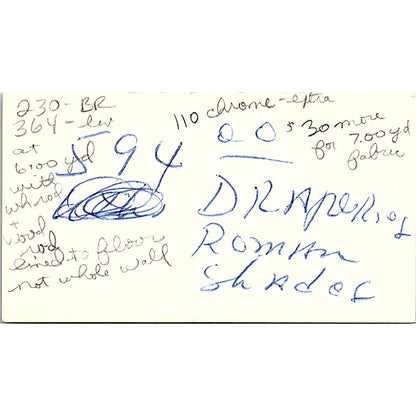 230 - BR
364 - liv
at
6.00 yd
with
wh rod
+
wood
rod
lined to floor
not whole wall
594
110 chrome - extra
00
$30 more
for 7.00 yd
fabric
DRAPERies
ROMAN
ShadeS